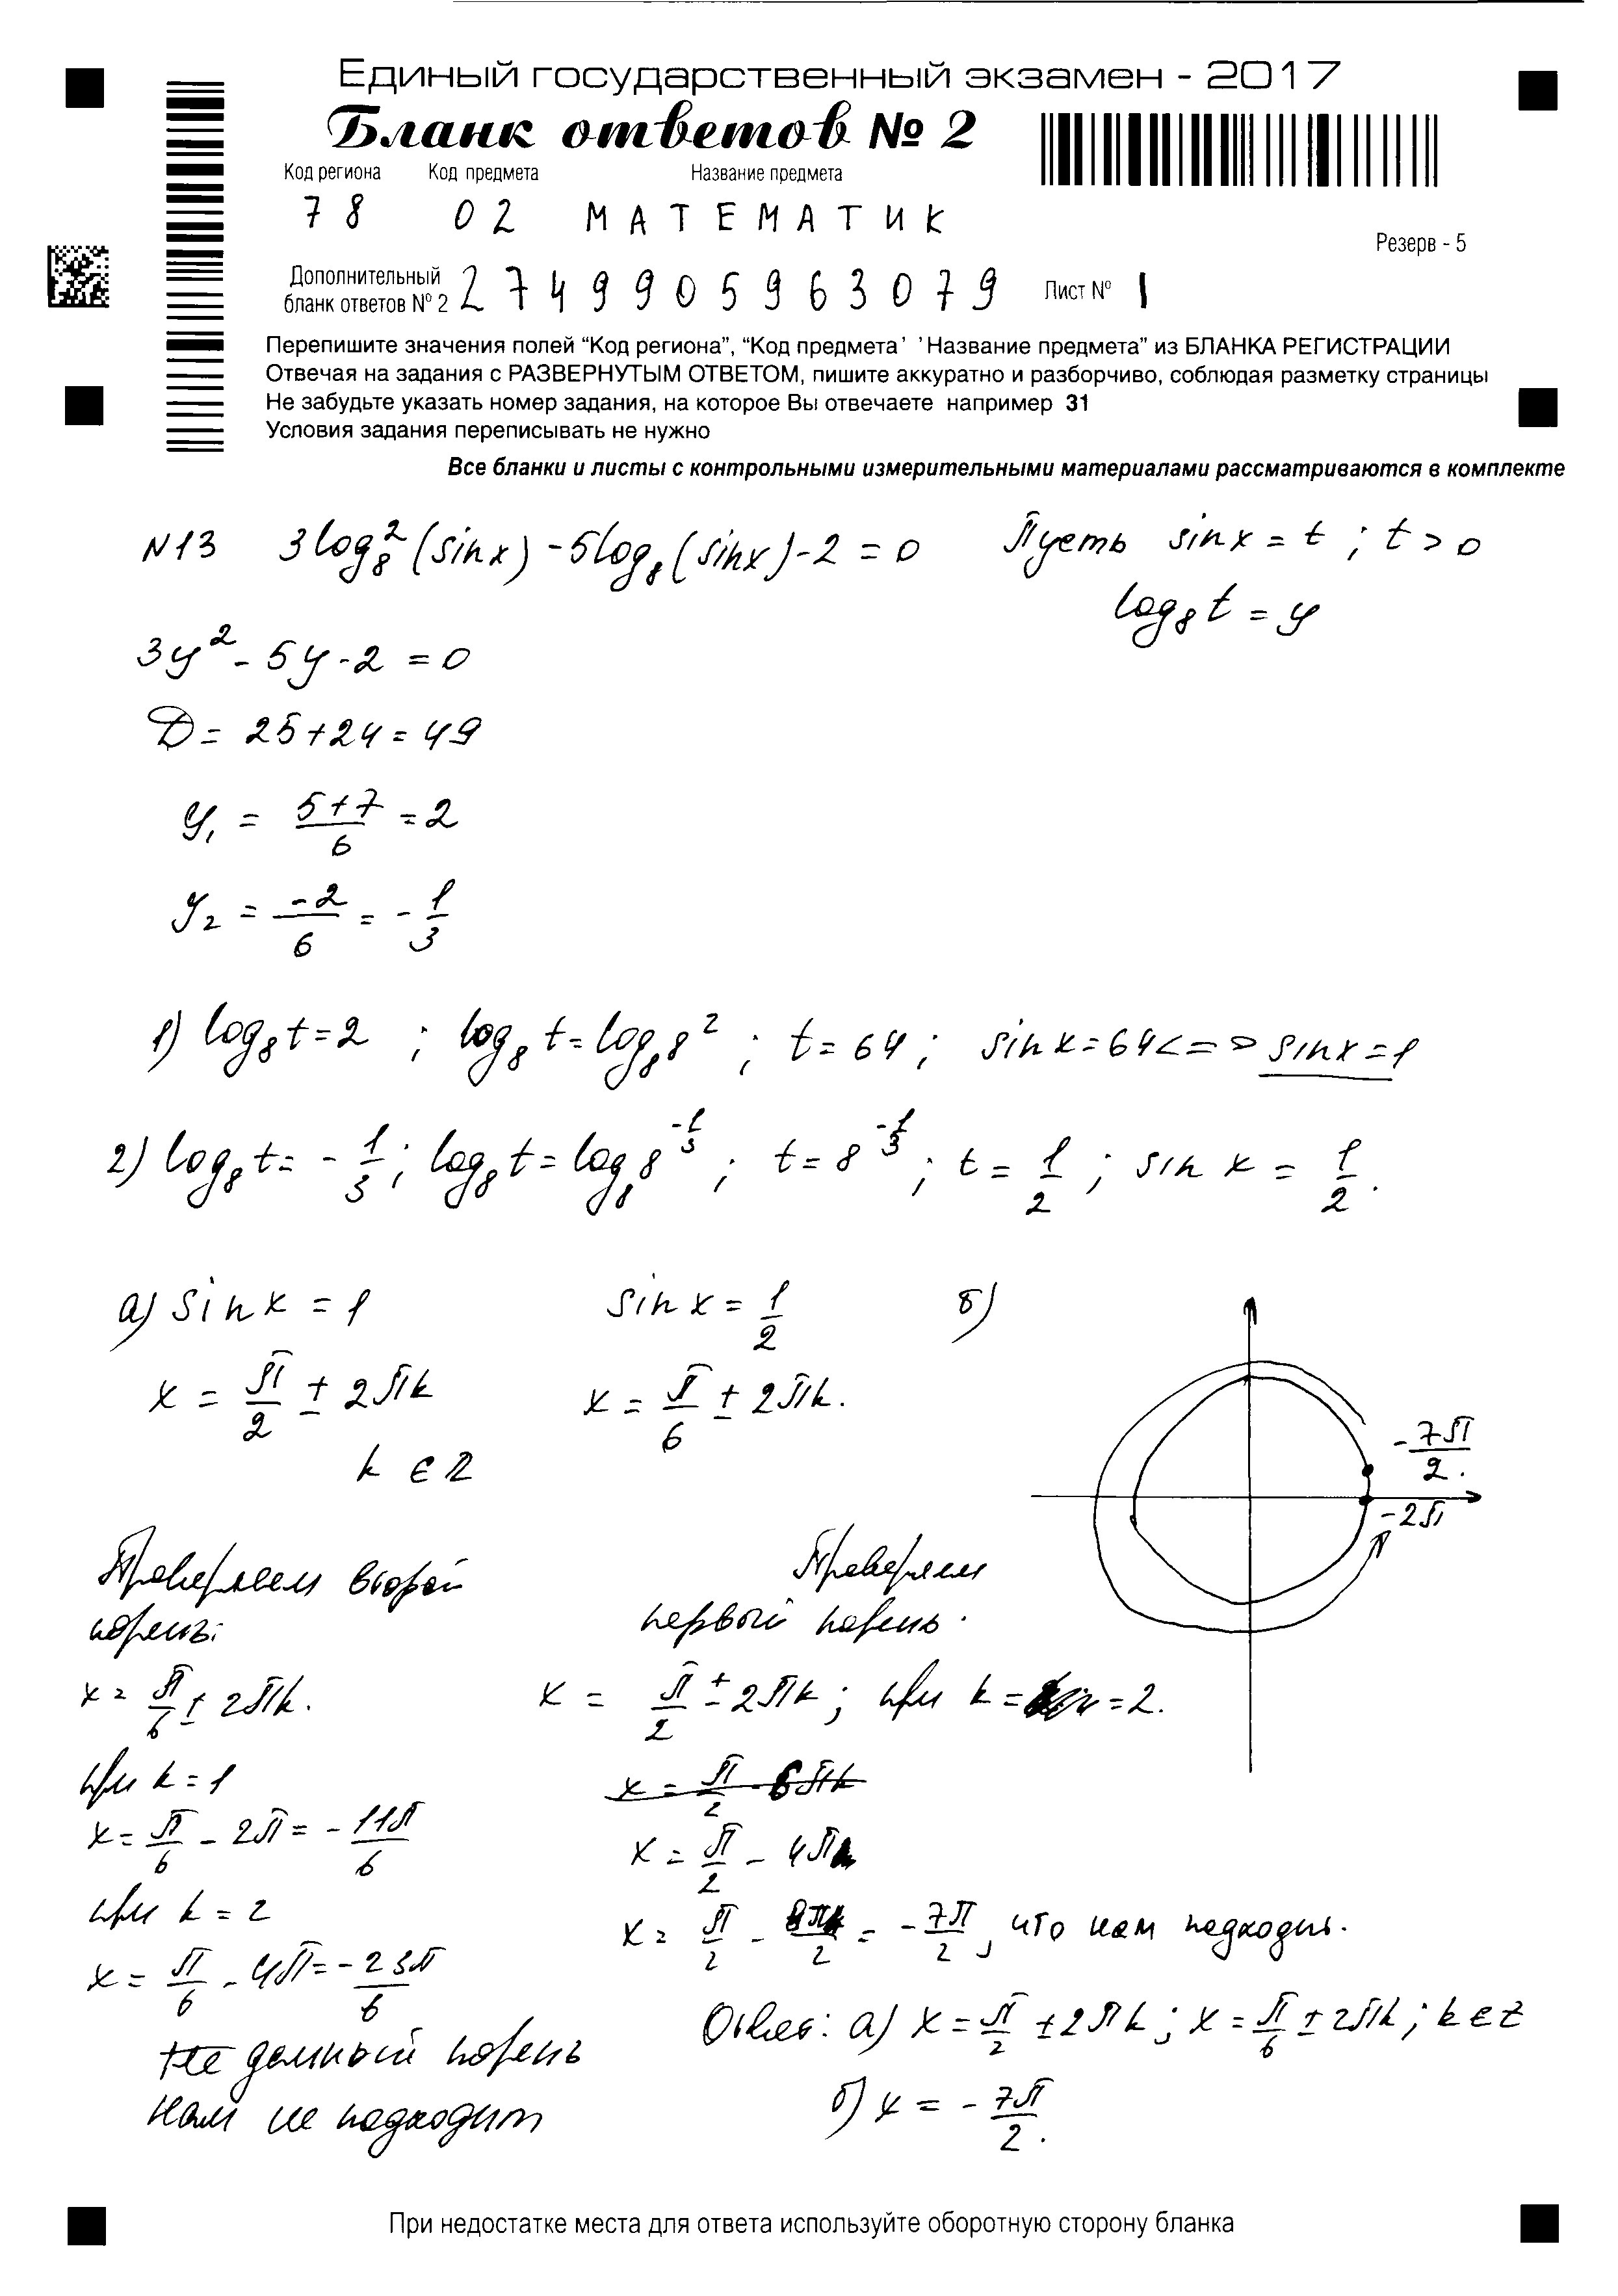 Единый государственный экзамен - 2017
Бланк ответов № 2
Код региона Код предмета Название предмета
78 02 МАТЕМАТИК
Резерв - 5
Дополнительный
бланк ответов № 2 2749905963079 Лист № 1
Перепишите значения полей “Код региона”, “Код предмета’ ’Название предмета” из БЛАНКА РЕГИСТРАЦИИ
Отвечая на задания с РАЗВЕРНУТЫМ ОТВЕТОМ, пишите аккуратно и разборчиво, соблюдая разметку страницы
Не забудьте указать номер задания, на которое Вы отвечаете например 31
Условия задания переписывать не нужно
Все бланки и листы с контрольными измерительными материалами рассматриваются в комплекте
N13 3log₈²(sinx) - 5log₈(sinx) - 2 = 0 Пусть sinx = t ; t > 0
log₈t = y
3y² - 5y - 2 = 0
D = 25+24 = 49
y₁ = (5+7)/6 = 2
y₂ = -2/6 = -1/3
1) log₈t = 2 ; log₈t = log₈8² ; t = 64 ; sinx = 64 <=> sinx = 1
2) log₈t = -1/3 ; log₈t = log₈8^(-1/3) ; t = 8^(-1/3) ; t = 1/2 ; sin x = 1/2.
а) sin x = 1 sin x = 1/2 б)
x = π/2 ± 2πk x = π/6 ± 2πk.
k ∈ Z
-7π/2.
-2π
Проверяем второй
корень:
x = π/6 ± 2πk.
при k = 1
x = π/6 - 2π = -11π/6
при k = 2
x = π/6 - 4π = -23π/6
Не данный корень
нам не подходит
Проверяем
первый корень.
x = π/2 ± 2πk ; при k = = 2.
x = π/2 - 6πk
x = π/2 - 4π
x = π/2 - 8π/2 = -7π/2, что нам подходит.
Ответ: а) x = π/2 ± 2πk ; x = π/6 ± 2πk ; k ∈ Z
б) x = -7π/2.
При недостатке места для ответа используйте оборотную сторону бланка